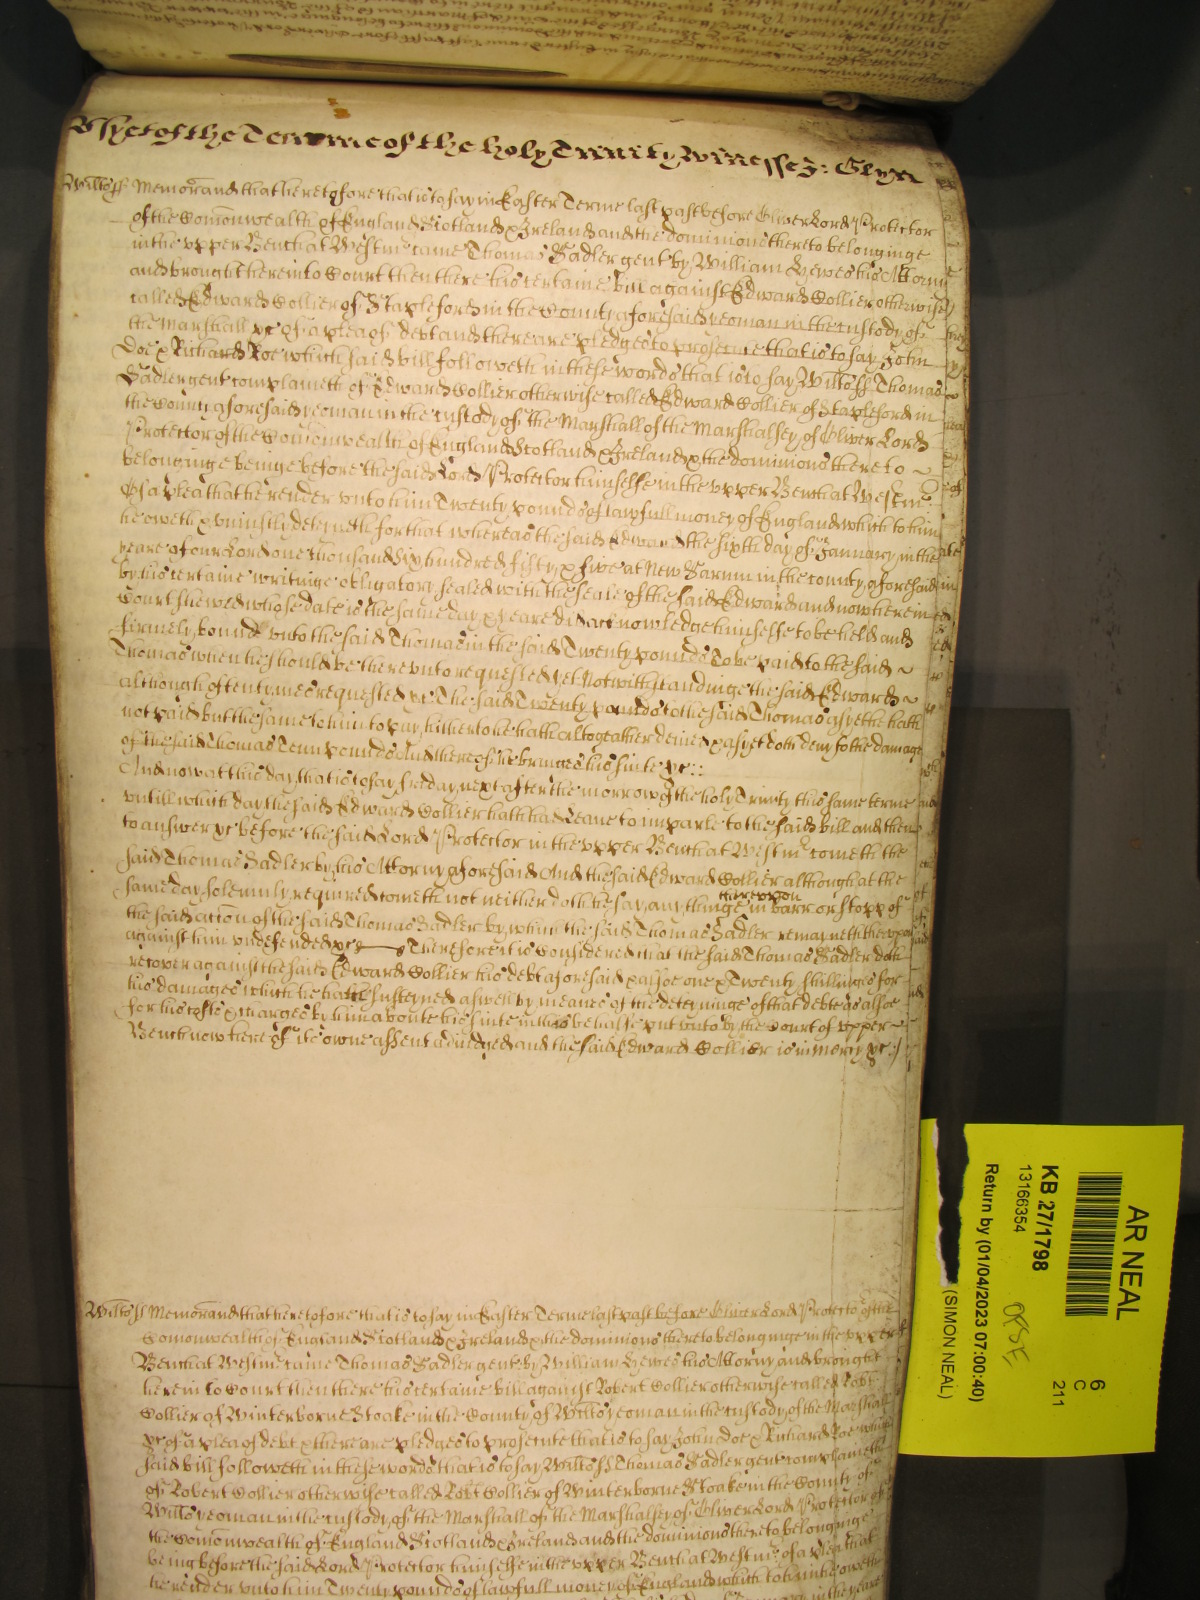 As yet of the Terme of the holy Trinity Witnesse: Glyn
Wiltes ss Memorand that heretofore that is to say in Easter Terme last past before Oliver Lord Protector
of the Comonwealth of England Scotland & Ireland and the dominions thereto belonginge
in the upper Bench at Westm came Thomas Sadler gent by William Hewes his Attorny
and brought here into Court then there his certaine bill against Edward Collier otherwise
called Edward Collier of Stapleford in the County aforesaid yeoman in the custody of
the Marshall &c of a plea of debt and there are pledges to prosecute that is to say John
Doe & Richard Roe which said bill followeth in these words that is to say Wiltes ss Thomas
Sadler gent complaineth of Edward Collier otherwise called Edward Collier of Stapleford in
the County aforesaid yeoman in the custody of the Marshall of the Marshalsey of Oliver Lord
Protector of the Comonwealth of England Scotland & Ireland & the dominions thereto
belonginge beinge before the said Lord Protector himselfe in the upper Bench at Westm
Of a plea that he render unto him Twenty pounds of lawfull money of England which to him
he oweth & uniustly deteyneth for that whereas the said Edward the sixth day of January in the
yeare of our Lord one thousand six hundred fifty & five at New Sarum in the county aforesaid
by his certaine writinge obligatory sealed with the seale of the said Edward and now here in
Court shewed whose date is the same day & yeare did acknowledge himselfe to be held and
firmely bound unto the said Thomas in the said Twenty pounds To be paid to the said
Thomas when he should be thereunto requested yet Notwithstandinge the said Edward
although oftentymes requested &c The said Twenty pounds to the said Thomas as yet he hath
not paid but the same to him to pay hitherto he hath altogeather denied & as yet doth deny to the damage
of the said Thomas Tenn pounds And thereof he bringes his suite &c::
And now at this day that is to say fryday next after the morrow of the holy Trinity this same terme
untill which day the said Edward Collier hath had Leave to imparle to the said bill and then
to answer &c before the said Lord Protector in the upper Bench at Westm cometh the
said Thomas Sadler by his Attorny aforesaid And the said Edward Collier although at the
same day solemnly required cometh not neither doth he say any thinge in barr or stopp of
the said action of the said Thomas Sadler by which the said Thomas Sadler remayneth thereupon
against him undefended &c Therefore it is Considered that the said Thomas Sadler doth
recover against the said Edward Collier his debt aforesaid & alsoe one & Twenty shillinges for
his damages which he hath susteyned aswell by meanes of the deteyninge of that debt as alsoe
for his costs & charges by him aboute his suite in this behalfe put unto by the Court of upper
Bench now here of its owne assent adiudged and the said Edward Collier is in mercy &c:/
Wiltes ss Memorand that heretofore that is to say in Easter Terme last past before Oliver Lord Protector of the
Comonwealth of England Scotland & Ireland & the dominions thereto belonginge in the upper
Bench at Westm came Thomas Sadler gent by William Hewes his Attorny and brought
here into Court then there his certaine bill against Robert Collier otherwise called Robt
Collier of Winterborne Stoake in the County of Wiltes yeoman in the custody of the Marshall
&c of a plea of debt & there are pledges to prosecute that is to say John Doe & Richard Roe which
said bill followeth in these words that is to say Wiltes ss Thomas Sadler gent complaineth
of Robert Collier otherwise called Robt Collier of Winterborne Stoake in the County of
Wiltes yeoman in the custody of the Marshall of the Marshalsey of Oliver Lord Protector of
the Comonwealth of England Scotland & Ireland and the dominions thereto belonginge
being before the said Lord Protector himselfe in the upper Bench at Westm of a plea that
he render unto him Twenty pounds of lawfull money of England which to him he oweth
AR NEAL
KB 27/1798
13166354
Return by (01/04/2023 07:00:40)
(SIMON NEAL)
6
C
211